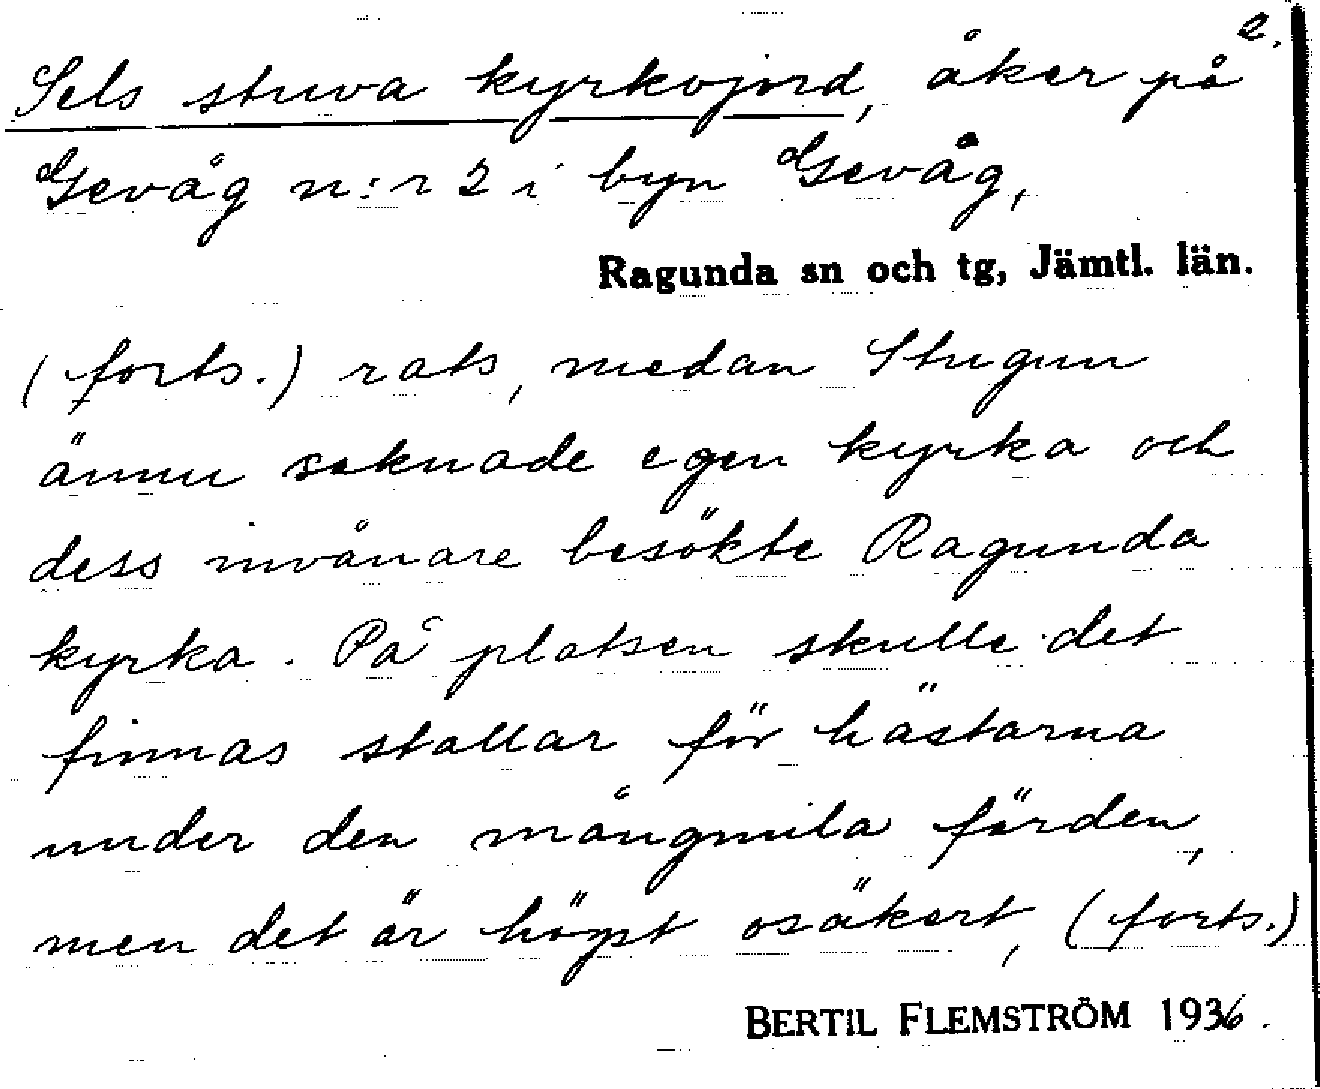 2.
Sels stuva kyrkojord, åker på
Gevåg n:r 2 i byn Gevåg,
Ragunda sn och tg, Jämtl. län.
(forts.) rats, medan Stugun
ännu saknade egen kyrka och
dess invånare besökte Ragunda
kyrka. På platsen skulle det
finnas stallar för hästarna
under den mångmila färden,
men det är högst osäkert, (forts.)
BERTIL FLEMSTRÖM 1936.